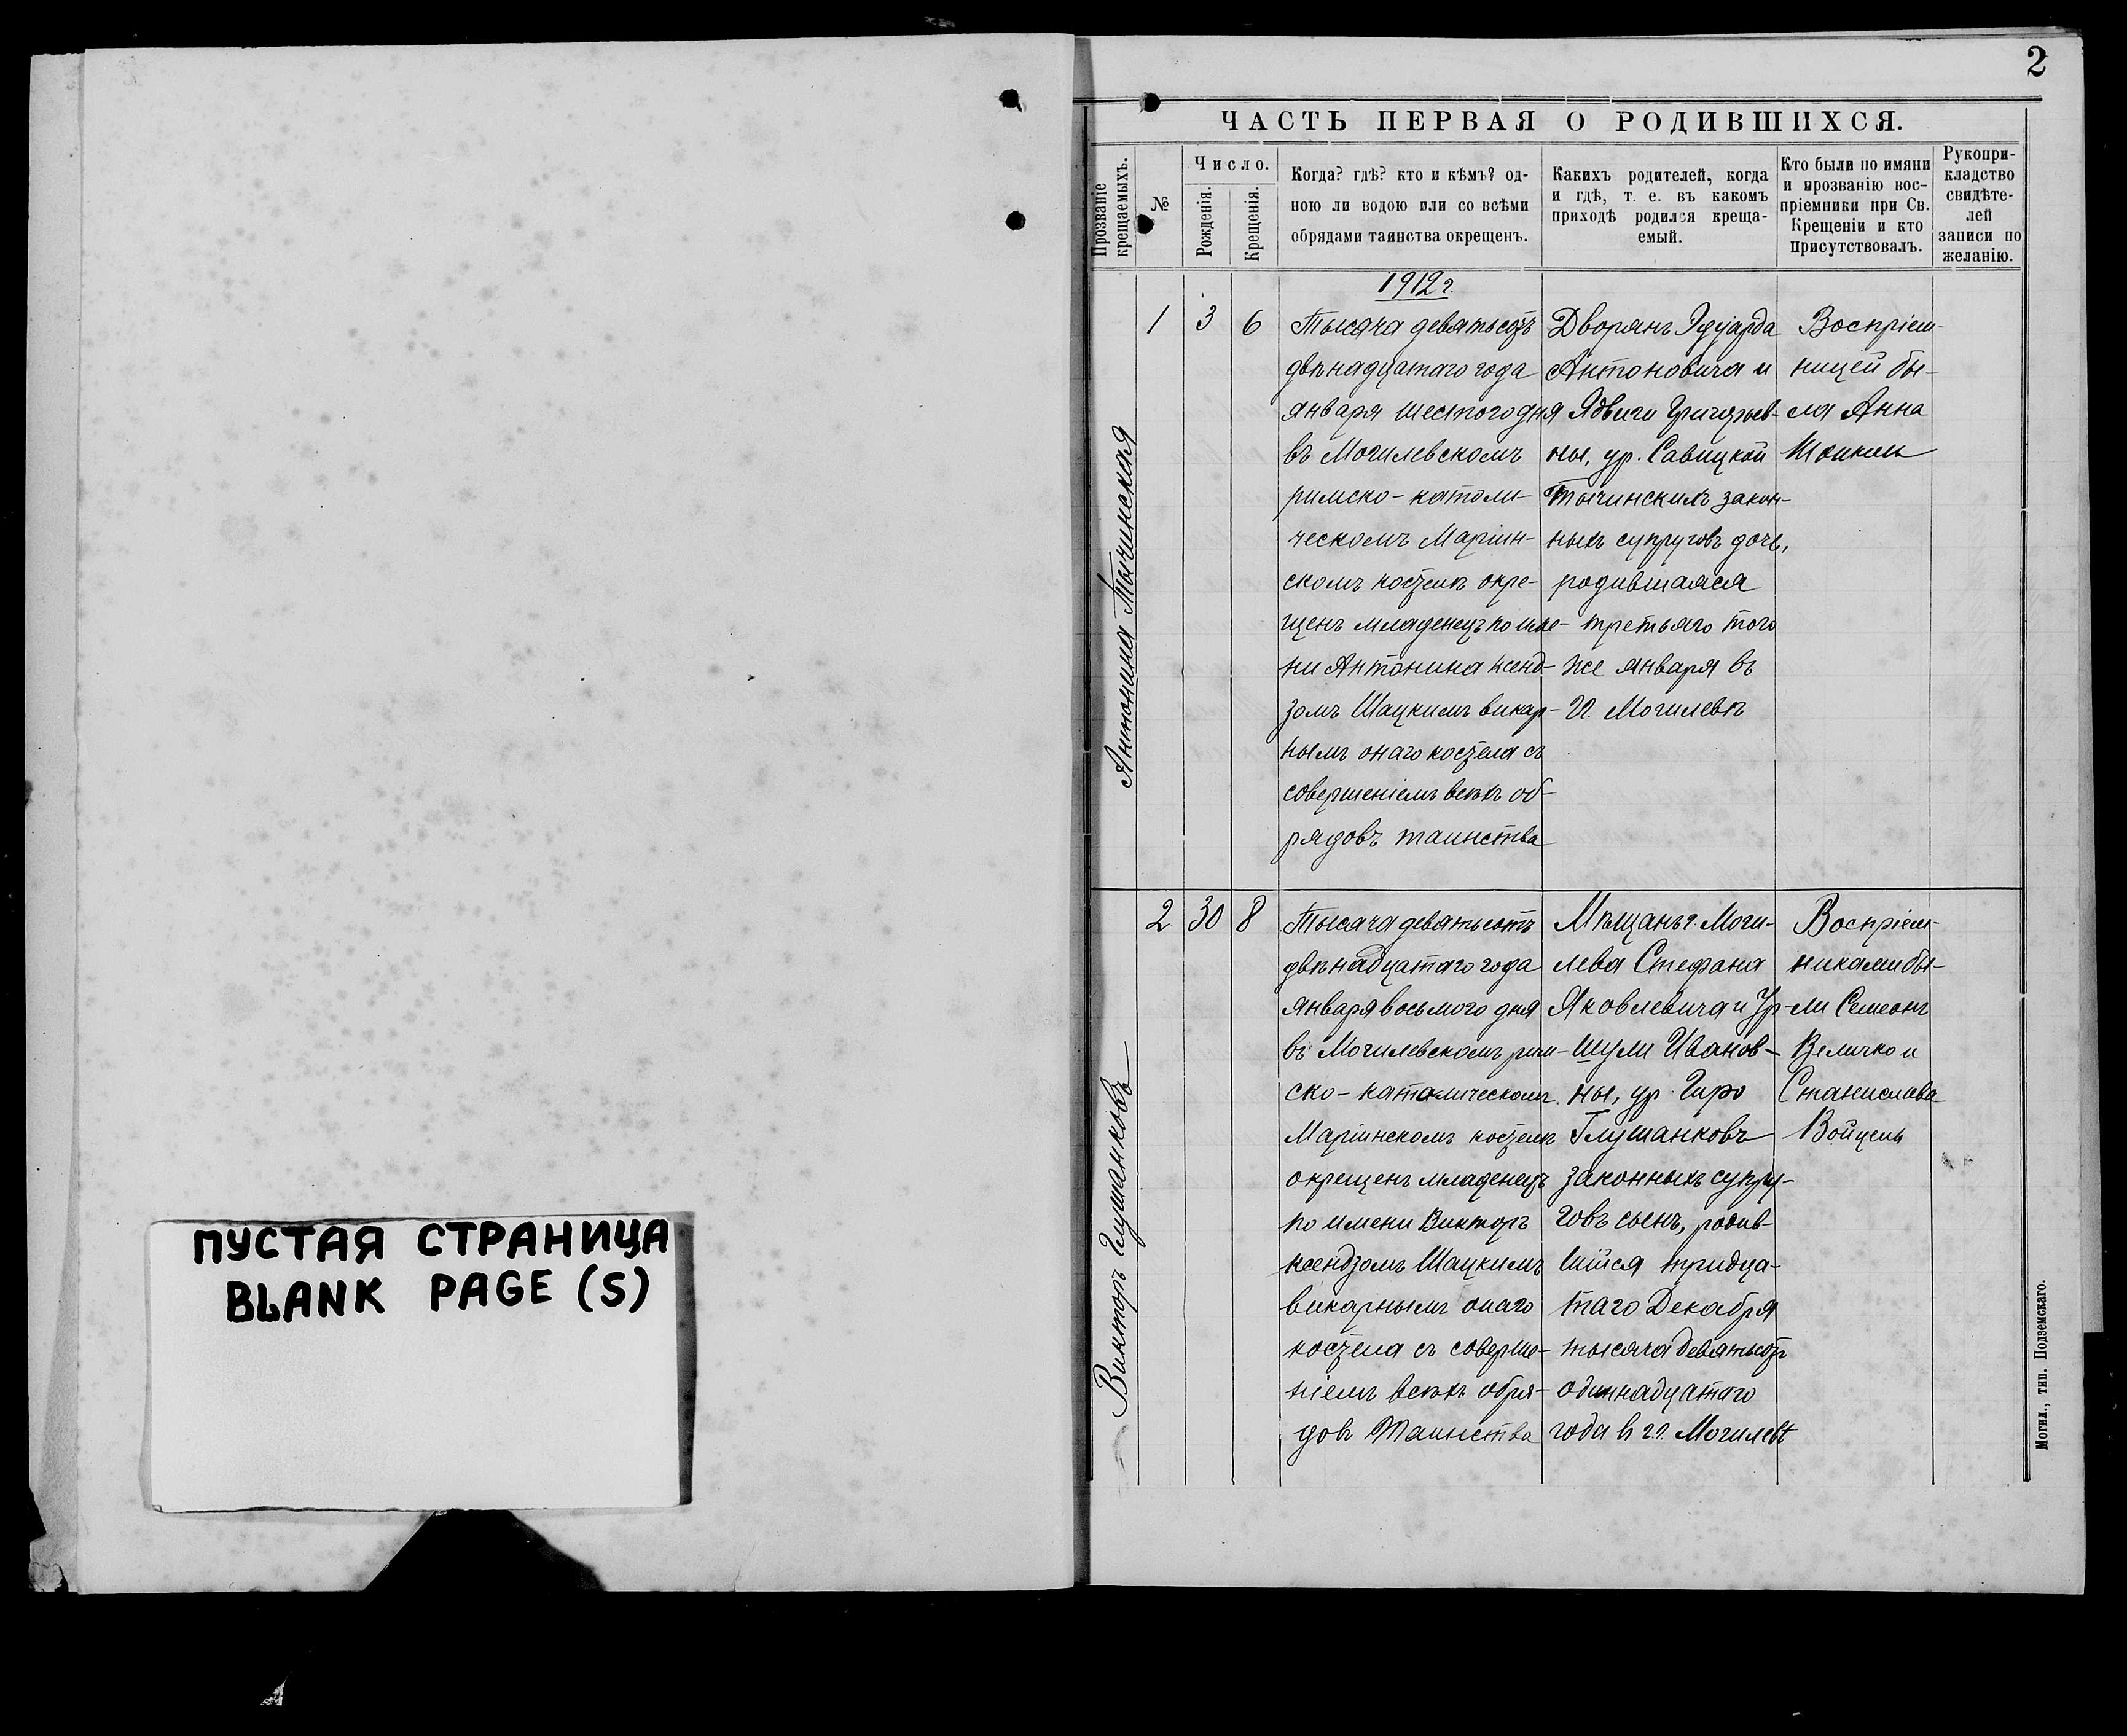 ПУСТАЯ СТРАНИЦА
BLANK PAGE (S)
2
ЧАСТЬ ПЕРВАЯ О РОДИВШИХСЯ.
Прозваніе
крещаемыхъ.
№
Число.
Рожденія.
Крещенія.
Когда? гдѣ? кто и кѣмъ? од-
ною ли водою или со всѣми
обрядами таинства окрещенъ.
Какихъ родителей, когда
и гдѣ, т. е. въ какомъ
приходѣ родился креща-
емый.
Кто были по имяни
и прозванію вос-
пріемники при Св.
Крещеніи и кто
присутствовалъ.
Рукопри-
кладство
свидѣте-
лей
записи по
желанію.
Антонина Тычинская
1
3
6
1912 г.
Тысяча девятьсотъ
двѣнадцатаго года
января шестого дня
въ Могилевскомъ
римско-католи-
ческомъ Маріин-
скомъ костелѣ окре-
щенъ младенецъ по име-
ни Антонина ксенд-
зомъ Шацкимъ викар-
нымъ онаго костела съ
совершеніемъ всѣхъ об-
рядовъ таинства
Дворянъ Эдуарда
Антоновича и
Ядвиги Григорьев-
ны, ур. Савицкой
Тычинскихъ закон-
ныхъ супруговъ дочь,
родившаяся
третьяго того
же января въ
г. Могилевѣ
Воспріем-
ницей бы-
ла Анна
Викторъ Глушанковъ
2
30
8
Тысяча девятьсотъ
двѣнадцатаго года
января восьмого дня
въ Могилевскомъ рим-
ско-католическомъ
Маріинскомъ костелѣ
окрещенъ младенецъ
по имени Викторъ
ксендзомъ Шацкимъ
викарнымъ онаго
костела съ соверше-
ніемъ всѣхъ обря-
довъ Таинства
Мѣщанъ г. Моги-
лева Стефана
Яковлевича и Ур-
шули Иванов-
ны, ур. Гиро
Глушанковъ
законныхъ супру-
говъ сынъ, родив-
шійся тридца-
таго Декабря
тысяча девятьсотъ
одиннадцатаго
года въ г. Могилевѣ
Воспріем-
никами бы-
ли Семеонъ
Величко и
Станислава
Войцель
Могил., тип. Подземскаго.